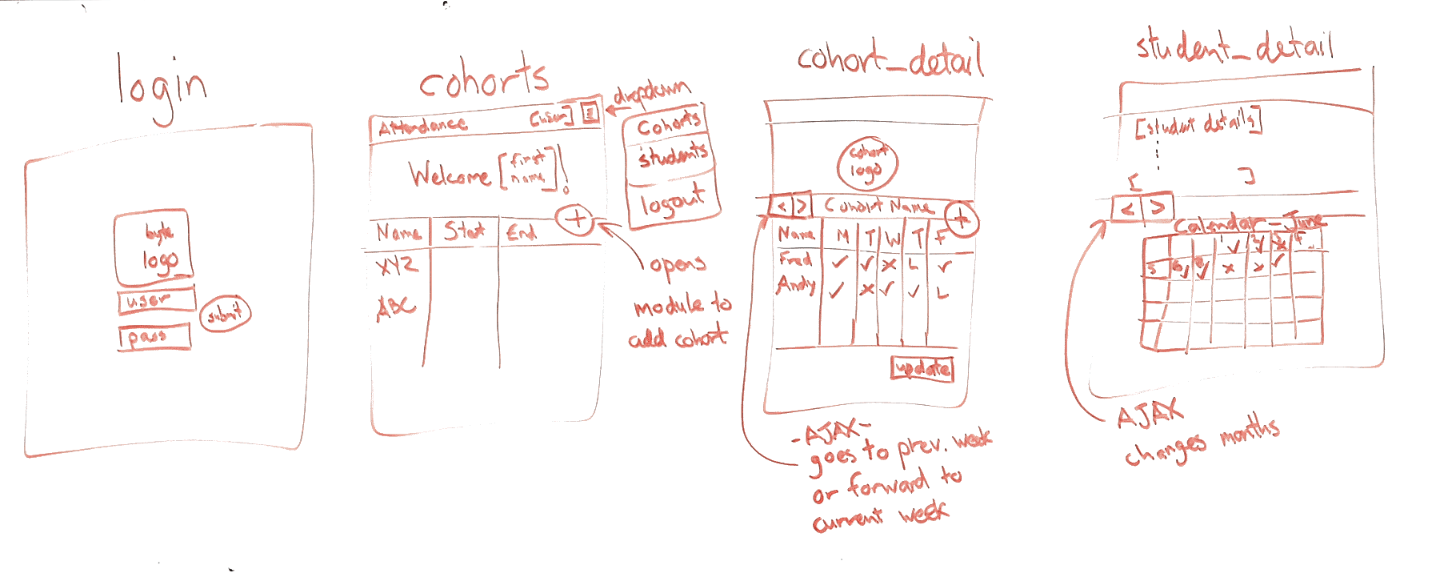 login
byte
logo
user
submit
pass
cohorts
Attendance [user]
dropdown
Cohorts
students
logout
Welcome [first
name]!
Name Start End +
XYZ
ABC
opens
module to
add cohort
cohort_detail
cohort
logo
< > Cohort Name +
Name M T W T F
Fred ✓ ✓ x L ✓
Andy ✓ x ✓ ✓ L
update
-AJAX-
goes to prev. week
or forward to
current week
student_detail
[student details]
[ ]
< >
Calendar - June
AJAX
changes months